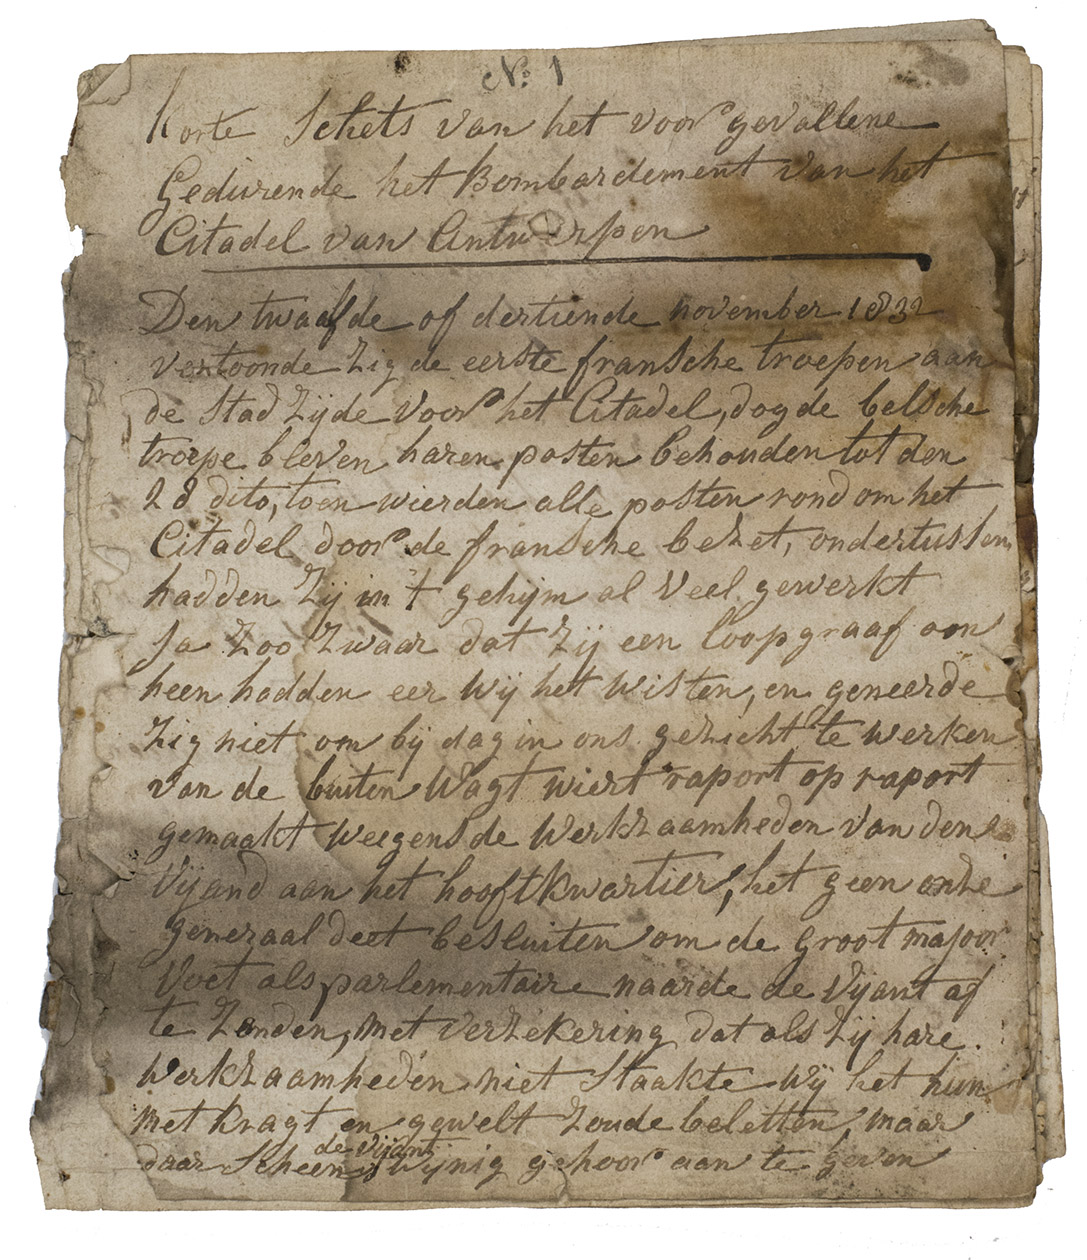 No: 1
Korte Schets van het voor gevallene
Gedurende het Bombardement van het
Citadel van Antwerpen
Den twaalfde of dertiende november 1832
vertoonde zig de eerste fransche troepen aan
de Stad zijde voor het Citadel, dog de belsche
troepe bleven haren posten behouden tot den
28 dito, toen wierden alle posten rond om het
Citadel door de fransche bezet, ondertussen
hadden zij in 't gehijm al veel gewerkt
Ja Zoo Zwaar dat zij een loopgraaf om
heen hadden eer wij het wisten, en geneerde
zig niet om bij dag in ons gezicht te werken
van de buiten Wagt wiert raport op raport
gemaakt weegens de werkzaamheden van den
Vijand aan het hooftkwartier, het geen onze
generaal deet besluiten om de groot majoor
Voet als parlementaire naarde de Vijant af
te Zenden, met verzekering dat als zij hare
werkzaamheden niet Staakte wij het hun
met kragt en gewelt zoude beletten, maar
de vijant
daar Scheen wijnig gehoor aan te geven